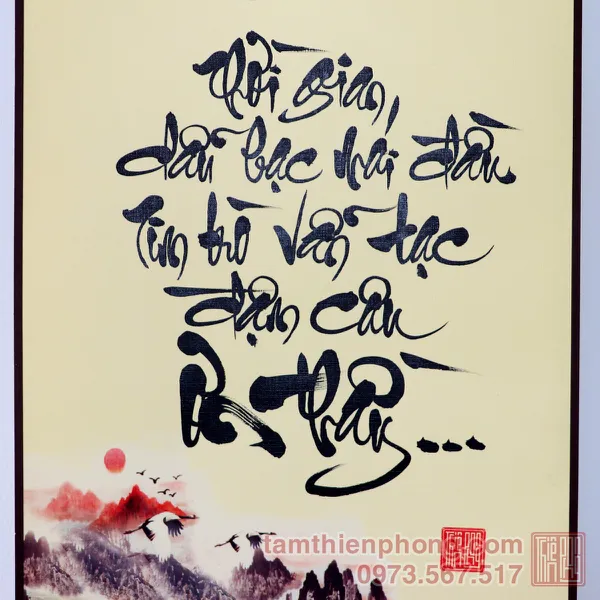 Thời gian,
dẫu bạc mái đầu
Tim trò vẫn tạc
đậm câu
ơn thầy...
tamthienphong.com
0973.567.517